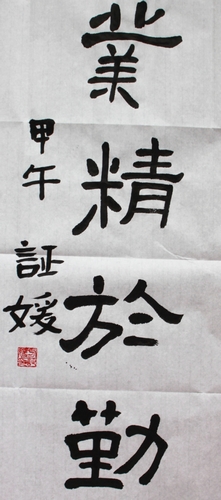 業精於勤
甲午
証媛